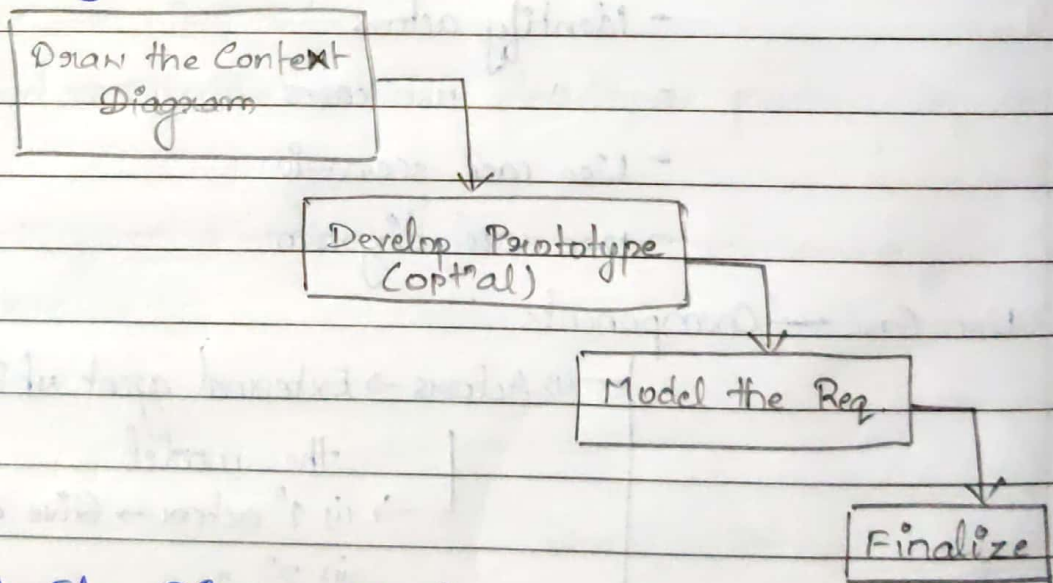 Draw the Context
Diagram
Develop Prototype
(optnal)
Model the Req.
Finalize